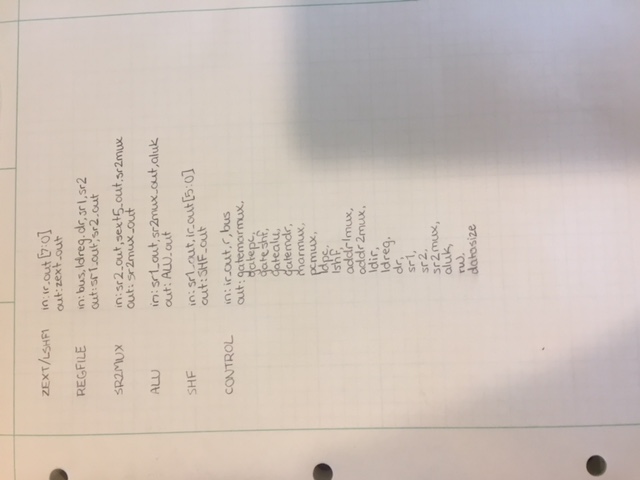 ZEXT/LSHF1 in: ir_out[7:0]
out: zext_out
REGFILE in: bus, ldreg, dr, sr1, sr2
out: sr1_out, sr2_out
SR2MUX in: sr2_out, sext5_out, sr2mux
out: sr2mux_out
ALU in: sr1_out, sr2mux_out, aluk
out: ALU_out
SHF in: sr1_out, ir_out[5:0]
out: SHF_out
CONTROL in: ir_out, r, bus
out: gatemarmux,
gatepc,
gateshf,
gatealu,
gatemdr,
marmux,
pcmux,
ldpc,
lshf,
addr1mux,
addr2mux,
ldir,
ldreg,
dr,
sr1,
sr2,
sr2mux,
aluk,
rw,
datasize